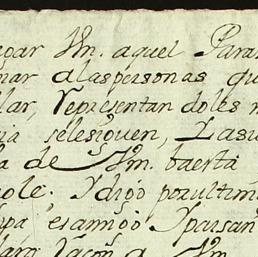 egar Vm. aquel Para
nar alaspersonas qu
lar, Representandoles
ia selesiguen, Lasu
a de Vm. baerta
ole. Y digo porultim
pa, es amigo Ypaisan
laro Jacon a Vm.